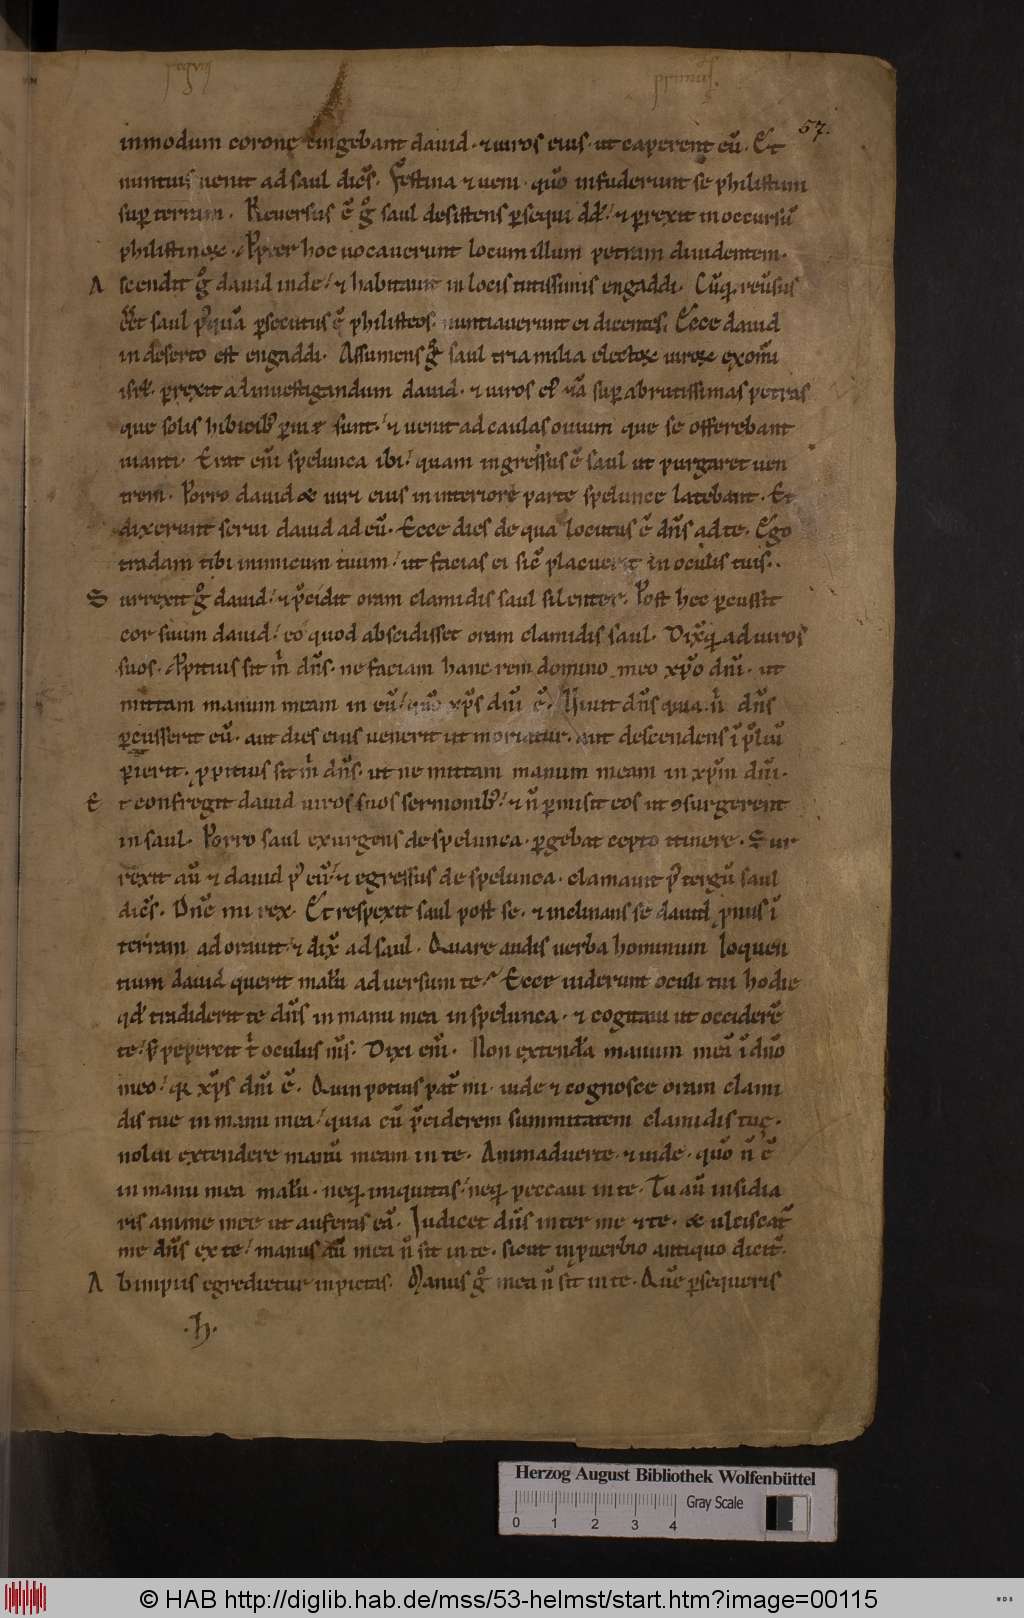 57.
in modum coronę cingebant dauid · & uiros eius · ut caperent eū · Et
nuntius uenit ad saul dicēs · Festina & ueni · quō infuderunt se philistiim
sup terram · Reuersus ē gͦ saul desistens ꝑsequi dd · & ꝑrexit in occursū
philistinoꝝ · Ppter hoc uocauerunt locum illum petram diuidentem ·
Ascendit gͦ dauid inde / & habitauit in locis tutissimis engaddi · Cūq reūsus
eēt saul pꝰquā ꝑsecutus ē philisteos · nuntiauerunt ei dicentes · Ecce dauid
in deserto est engaddi · Assumens gͦ saul tria milia electoꝝ uiroꝝ ex om̄i
isrl · ꝑrexit ad inuestigandum dauid · & uiros ei etiā sup abrutissimas petras
que solis hibicibꝰ ꝑuię sunt / & uenit ad caulas ouium que se offerebant
uianti · Erat em̄ spelunca ibi / quam ingressus ē saul ut purgaret uen
trem · Porro dauid & uiri eius in interiore parte spelunce latebant · Et
dixerunt serui dauid ad eū · Ecce dies de qua locutus ē dn̄s ad te · Ego
tradam tibi inimicum tuum / ut facias ei sic̄ placuerit in oculis tuis ·
Surrexit gͦ dauid / & p̄cidit oram clamidis saul silenter · Post hec ꝑcussit
cor suum dauid / eo quod abscidisset oram clamidis saul · Dix̄q ad uiros
suos · Ppitius sit m̄ dn̄s · ne faciam hanc rem domino meo xp̄o dn̄i · ut
mittam manum meam in eū / quō xp̄s dn̄i ē · Uiuit dn̄s quia n̄ dn̄s
ꝑcusserit eū · aut dies eius uenerit ut moriatur · aut descendens ī p̄liū
ꝑierit · ppitius sit m̄ dn̄s · ut ne mittam manum meam in xp̄m dn̄i ·
Et confregit dauid uiros suos sermonibꝰ / & n̄ ꝑmisit eos ut ꝯsurgerent
in saul · Porro saul exurgens de spelunca · ꝑgebat cepto itinere · Sur
rexit aū & dauid pꝰ eū / & egressus de spelunca · clamauit pꝰ tergū saul
dicēs · Dn̄e mi rex · Et respexit saul post se · & inclinans se dauid pnus ī
terram adorauit / & dix̄ ad saul · Quare audis uerba hominum loquen
tium dauid querit malū aduersum te / Ecce uiderunt oculi tui hodie
qd tradiderit te dn̄s in manu mea in spelunca · & cogitaui ut occiderē
te / sꝫ peperit t̄ oculus ms̄ · Dixi em̄ · Non extendā manum meā ī dn̄o
meo / qa xp̄s dn̄i ē · Quin potius pat̄ mi · uide & cognosce oram clami
dis tue in manu mea / quia cū p̄ciderem summitatem clamidis tuę ·
nolui extendere manū meam in te · Animaduerte · & uide · quō n̄ ē
in manu mea malū · neq iniquitas / neq peccaui in te · Tu aū insidia
ris anime mee ut auferas eā · Iudicet dn̄s inter me & te · & ulciscat̄
me dn̄s ex te / manus aū mea n̄ sit in te · sicut in puerbio antiquo dicit̄ ·
Ab impiis egredietur impietas · Manus gͦ mea n̄ sit in te · Quē ꝑsequeris
· h ·
Herzog August Bibliothek Wolfenbüttel
Gray Scale
0 1 2 3 4
© HAB http://diglib.hab.de/mss/53-helmst/start.htm?image=00115